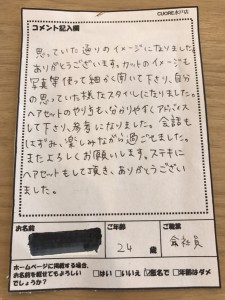 CUORE水戸店
コメント記入欄
思っていた通りのイメージになりました。
ありがとうございます。カットのイメージも
写真等使って細かく聞いて下さり、自分
の思っていた様なスタイルになりました。
ヘアセットのやり方も、分かりやすくアドバイス
して下さり、参考になりました。会話も
はずみ、楽しみながら過ごせました。
またよろしくお願いします。ステキに
ヘアセットもして頂き、ありがとうござい
ました。
お名前
ご年齢
24 歳
ご職業
会社員
ホームページに掲載する場合、
お名前を載せてもよろしい
でしょうか?
□はい □いいえ ☑匿名で □年齢はダメ